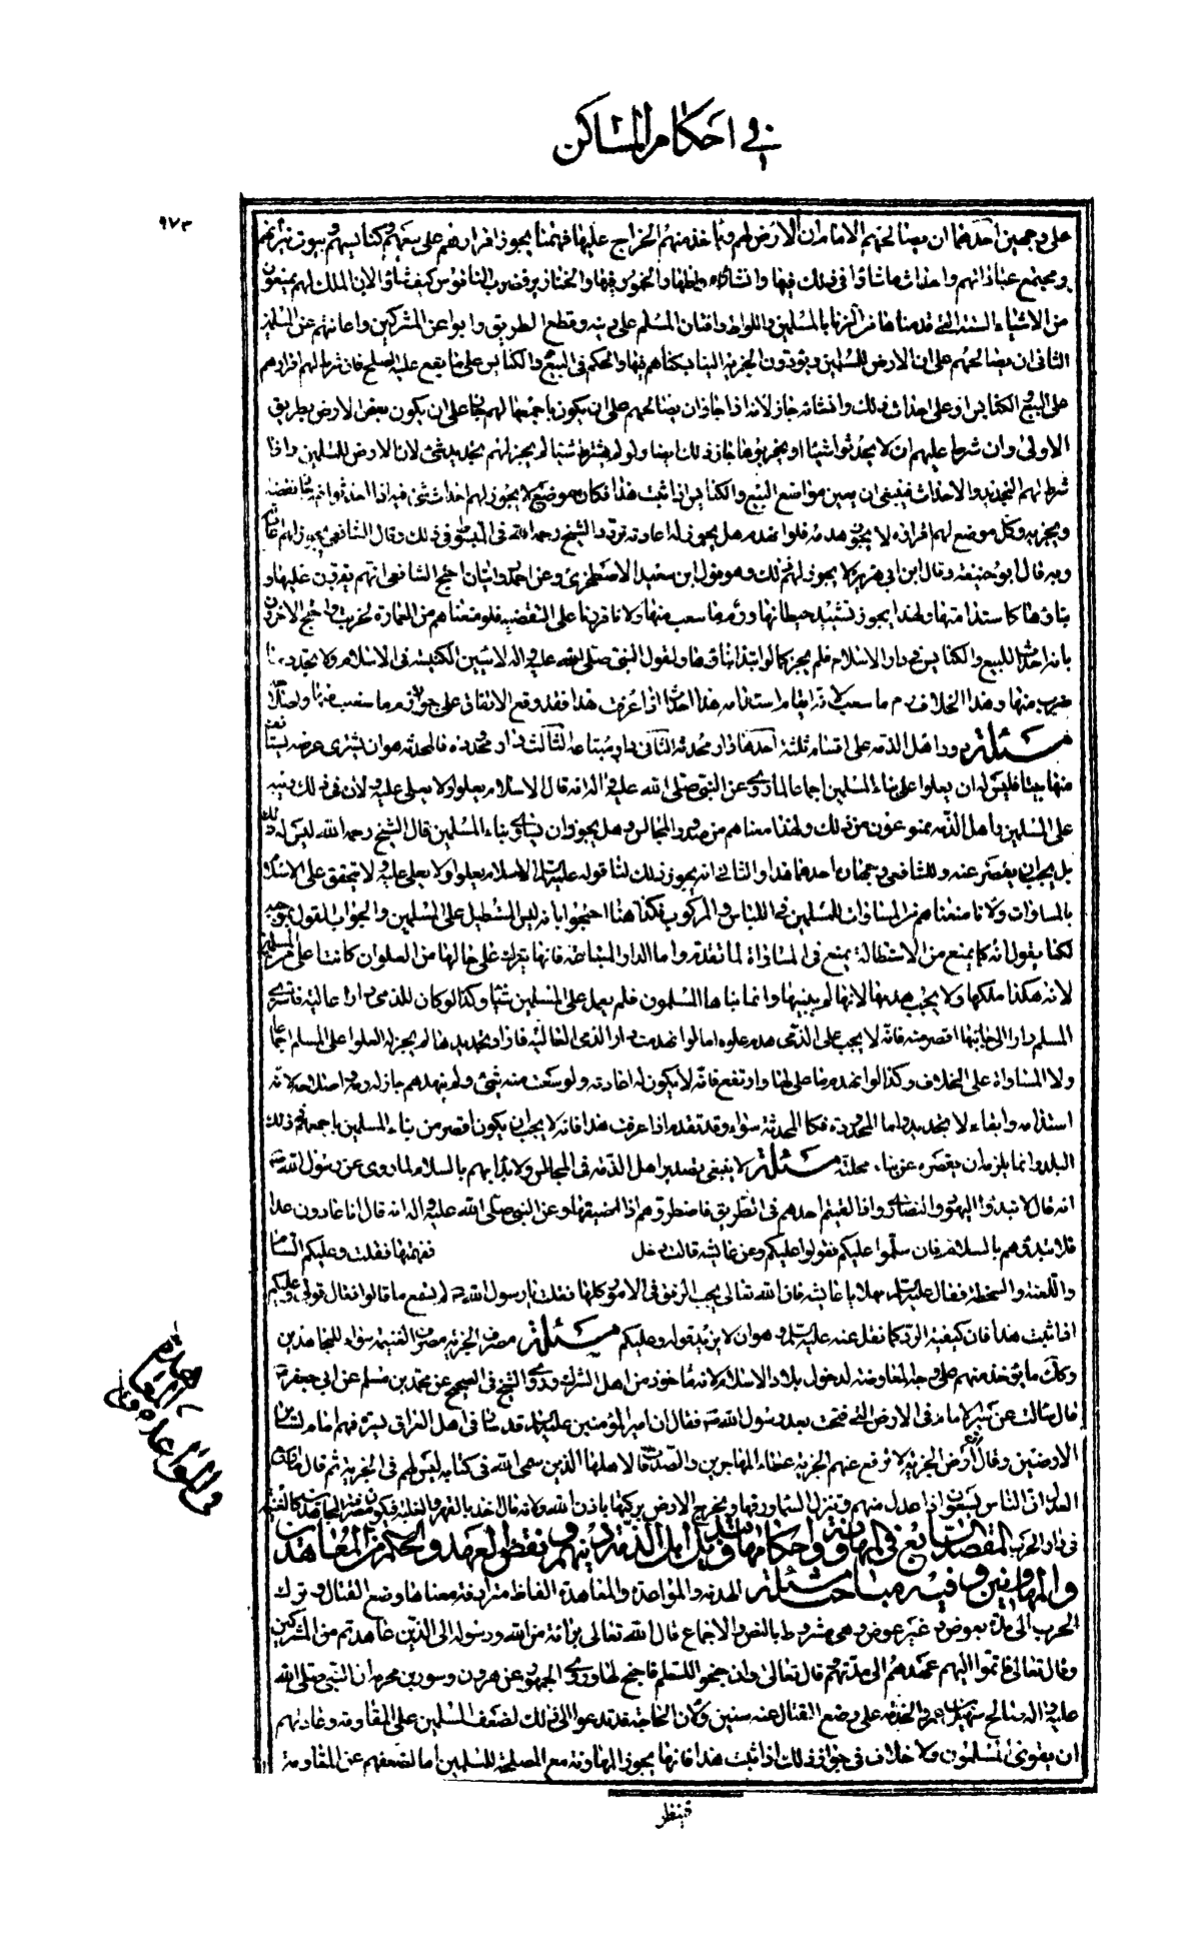 في احكام المساكن
٩٧٣
على وجهين احدهما ان يصالحهم الامام ان الارض لهم ويأخذ منهم الخراج عليها فهنا يجوز اقرارهم على بيعهم وكنايسهم وبيوت نيرانهم
ومجتمع عباداتهم واحداث ما شاؤا في ذلك فيها وانشائه واظهار الخمور فيها والخنازير وضرب الناقوس كيف شاؤا لان الملك لهم يمنعون
من الاشياء الستة التي قدمناها من الزنا بالمسلمين واللواط وافتنان المسلم على دينه وقطع الطريق وايواء عين المشركين واعانتهم على المسلمين
الثاني ان يصالحهم على ان الارض للمسلمين ويؤدون الجزية الينا بسكناهم فيها والحكم في البيع والكنايس على ما يقع عليه الصلح فان شرط لهم اقرارهم
على البيع والكنايس او على احداث ذلك وانشائه جاز لانه اذا جاز ان يصالحهم على ان يكون باجمعها لهم جاز على ان يكون بعض الارض بطريق
الاولى وان شرط عليهم ان لا يحدثوا شيئا او يخربوها جاز ذلك ايضا ولو لم يشترط شيئا لم يجز لهم تجديد شئ لان الارض للمسلمين واذا
شرط لهم التجديد والاحداث فينبغي ان يعين مواضع البيع والكنايس اذا ثبت هذا فكل موضع لا يجوز لهم احداث شئ فيه اذا احدثوا فيه جاز نقضه
وتخريبه وكل موضع لهم اقراره لا يجوز هدمه فلو انهدم هل يجوز له اعادته تردد الشيخ رحمه الله في المبسوط في ذلك وقال الشافعي يجوز لهم
وبه قال ابو حنيفة وقال ابن ابي هريرة لا يجوز لهم ذلك وهو قول ابن سعيد الاصطخري وعن احمد روايتان احتج الشافعي انهم يقرون عليها و
بناؤها كاستدامتها ولهذا يجوز تشييد حيطانها ورم ما تشعب منها ولانا قررنا على التبقية فلو منعناهم من العمارة لخربت احتج الاخرون
بانه احداث للبيع والكنايس في دار الاسلام فلم يجز كما لو ابتدا بناؤها ولقول النبي صلى الله عليه واله لا تبنى الكنيسة في الاسلام ولا يجدد ما
خرب منها وهذا بخلاف رم ما تشعب لانه ابقاء واستدامة هذا احداث اذا عرفت هذا فقد وقع الاتفاق على جواز رم ما تشعب منها واصلاحه
مسئلة ودور اهل الذمة على اقسام ثلثة احدها دار محدثة الثاني دار مبتاعة الثالث دار مجددة فالمحدثة هو ان يشترى عرصة يستانف
منها بيتا فليس له ان يعلوا على بناء المسلمين اجماعا لما روي عن النبي صلى الله عليه واله انه قال الاسلام يعلو ولا يعلى عليه ولان في ذلك رتبة
على المسلمين واهل الذمة ممنوعون من ذلك ولهذا منعناهم من صدور المجالس وهل يجوز ان يساوي بناء المسلمين قال الشيخ رحمه الله ليس له ذلك
بل يجب ان يقصر عنه وللشافعي وجهان احدهما هذا والثاني انه يجوز ذلك لنا قوله عليه السلام الاسلام يعلوا ولا يعلى عليه لا يتحقق علو الاسلام
بالمساوات ولانا منعناهم من المساوات للمسلمين في اللباس والركوب فكذا هنا احتجوا بانه ليس بمستطيل على المسلمين والجواب القول بموجبه
لكنا نقول انه كما يمنع من الاستطالة يمنع في المساواة لما تقدم واما الدار المبتاعة فانها تترك على حالها من العلو ان كانت اعلى من المسلم
لانه هكذا ملكها ولا يجب هدمها لانه لم يبنيها وانما بناها المسلمون فلم يعل على المسلمين شيئا وكذا لو كان للذمي دار عالية فاشترى
المسلم دارا الى جانبها اقصر منه فانه لا يجب على الذمي هدم علوه اما لو انهدمت دار الذمي العالية فاراد تجديدها لم يجز له العلو على المسلم اجماعا
ولا المساواة على الخلاف وكذا لو انهدم ما علا منها وارتفع فانه لا يكون له اعادته ولو تشعب منه شئ ولم ينهدم جاز له رمه واصلاحه لانه
استدامة وابقاء لا تجديد واما المجددة فكالمحدثة سواء وقد تقدم اذا عرفت هذا فانه لا يجب ان يكون اقصر من بناء المسلمين باجمعهم في ذلك
البلد وانما يلزمه ان يقصره عن بناء محلته مسئلة لا ينبغي تصدير اهل الذمة في المجالس ولا بدأتهم بالسلام لما روى عن رسول الله ص
انه قال لا تبدؤا اليهود والنصارى واذا لقيتم احدهم في الطريق فاضطروهم الى اضيقها وعن النبي صلى الله عليه واله انه قال انا غادون غدا
فلا تبدؤهم بالسلام فان سلموا عليكم فقولوا عليكم وعن عايشة قالت دخل ففهمتها فقلت وعليكم السام
واللعنة والسخطة فقال عليه السلام مهلا يا عايشة فان الله تعالى يحب الرفق في الامور كلها فقلت يا رسول الله ص لم تسمع ما قالوا فقال قولي عليكم
اذا ثبت هذا فان كيفية الرد كما نقل عنه عليه السلام وهو ان لا يزيد قوله وعليكم مسئلة مصرف الجزية مصرف الغنيمة سواء للمجاهدين
وكذلك ما يؤخذ منهم على وجه المعاوضة لدخول بلاد الاسلام لانه مأخوذ من اهل الشرك وروى الشيخ في الصحيح عن محمد بن مسلم عن ابي جعفر ع
قال سالت عن سيرة الامام في الارض التي فتحت بعد رسول الله ص فقال ان امير المؤمنين عليه السلام قد سار في اهل العراق بسيرة فهم امام لسائر
الارضين وقال ارض الجزية لا ترفع عنهم الجزية عطاء المهاجرين والصدقات لاهلها الذين سمى الله في كتابه ليس لهم في الجزية ثم قال ما اوسع
العدل ان الناس يتسعون اذا عدل فيهم وتنزل السماء رزقها وتخرج الارض بركتها باذن الله ولانه مال اخذ بالقهر والغلبة فيكون مصرفه المجاهدين كالغنيمة
في دار الحرب المقصد السابع في المهادنة واحكامها وتبديل اهل الذمة دينهم ونقض العهد والحكم من المعاهدين
والمهادنين وفيه مباحث مسئلة الهدنة والمواعدة والمعاهدة الفاظ مترادفة معناها وضع القتال وترك
الحرب الى مدة بعوض وغير عوض وهي مشروط بالنص والاجماع قال الله تعالى برائة من الله ورسوله الى الذين عاهدتم من المشركين
وقال تعالى فاتموا اليهم عهدهم الى مدتهم قال تعالى وان جنحوا للسلم فاجنح لها وروى الجمهور عن مروان ومسور بن مخرمة ان النبي صلى الله
عليه واله صالح سهيل بن عمرو بالحديبية على وضع القتال عشر سنين ولان الحاجة قد تدعوا الى ذلك لضعف المسلمين على المقاومة وغلبتهم
ان يقوى المسلمون ولا خلاف في جواز ذلك اذا ثبت هذا فانها يجوز المهادنة مع المصلحة للمسلمين اما لضعفهم عن المقاومة
فينتظر